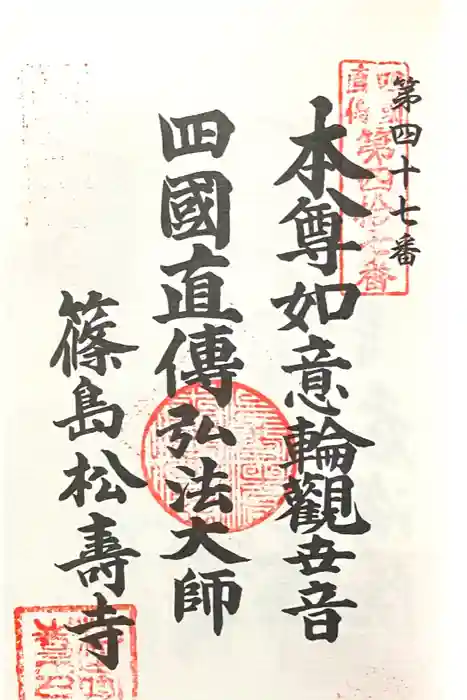 第四十七番
四國直傳
第四拾七番
本尊如意輪觀世音
四國直傳弘法大師
篠島松壽寺